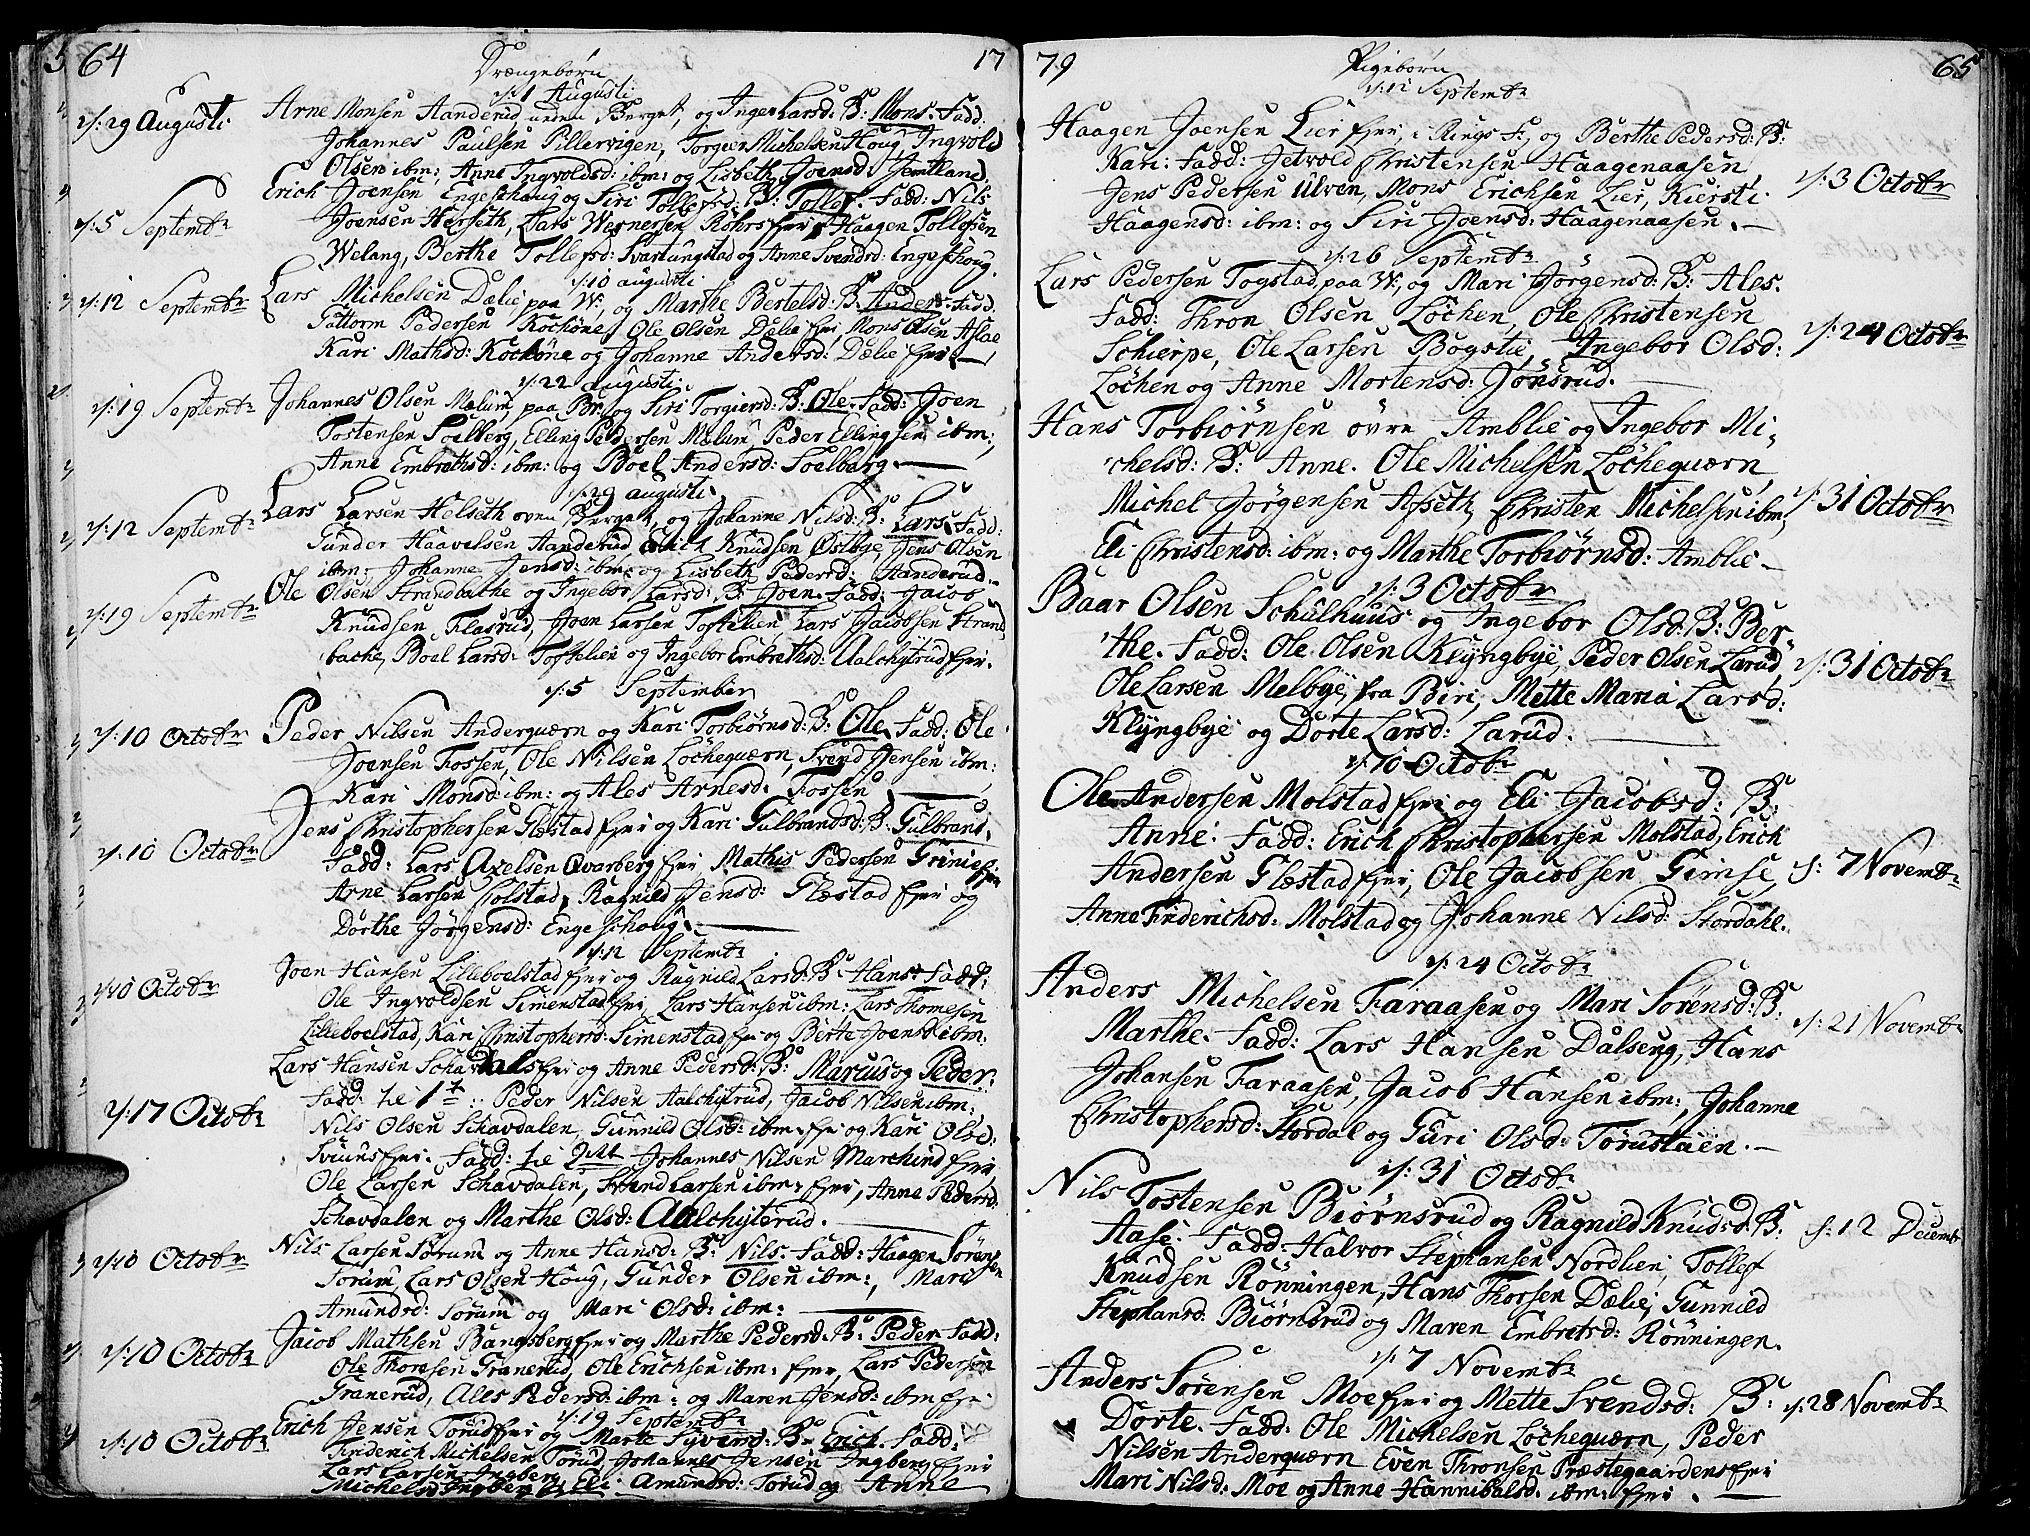 64
17
Drængebørn
d: 1 Augusti
d: 29 Augusti
Arne Monsen Aanderud unden Berget, og Inger Larsd: B: Mons. Fadd:
Johannes Paulsen Pillervigen, Torgier Michelsen Houg, Ingvold
Olsen ibm:, Anne Ingvoldsd: ibm: og Lisbeth Joensd: Jemtland.
d: 5 Septembr
Erich Joensen Engeschoug og Siri Tollefsd: B: Tollef. Fadd: Nils
Joensen Herseth, Lars Wernersen Rohrs Eje, Haagen Tollefsen
Welang, Berthe Tollefsd: Svartungstad og Anne Svendsd: Engeschoug.
d: 10 augusti
d: 12 Septembr
Lars Michelsen Dælie, paa W:, og Marthe Bertelsd: B: Anders. Fadd:
Guttorm Pedersen Kochøne, Ole Olsen Dælie Eje, Mons Olsen Aslae
Kari Mathsd: Kochøne og Johanne Andersd: Dælie Eje.
d: 22 Augusti
d: 19 Septembr
Johannes Olsen Mælum, paa Br: og Siri Torgiersd: B: Ole. Fadd: Joen
Tostensen Soelberg, Elling Pedersen Mælum, Peder Ellingsen ibm:,
Anne Embrethsd: ibm: og Boel Andersd: Soelberg.
d: 29 augusti
d: 12 Septembr
Lars Larsen Helseth oven Berget, og Johanne Nilsd: B: Lars. Fadd:
Gunder Haavelsen Aanderud, Erich Knudsen Østbye, Jens Olsen
ibm:, Johanne Jensd: ibm: og Lisbeth Pedersd: Aanderud.
d: 19 Septembr
Ole Olsen Strandbache og Ingebor Larsd: B: Joen. Fadd: Jacob
Knudsen Flasrud, Joen Larsen Toftelien, Lars Jacobsen Strand
bache, Boel Larsd: Toftelien og Ingebor Embrethsd: Aalchytrud Eje.
d: 5 September
d: 10 Octobr
Peder Nilsen Anderquærn og Kari Torbiørnsd: B: Ole. Fadd: Ole
Joensen Fossen, Ole Nilsen Løchequærn, Svend Jensen ibm:
Kari Monsd: ibm: og Ales Arnesd: Fossen.
d: 10 Octobr
Jens Christophersen Glæstad Eje og Kari Gulbrandsd: B: Gulbrand.
Fadd: Lars Axelsen Qvarberg Eje, Mathis Pedersen Grinie Eje
Arne Larsen Holstad, Ragnild Jensd: Glæstad Eje og
Dorthe Jørgensd: Engeschoug.
d: 12 Septembr
d: 10 Octobr
Joen Hansen Lilleboelstad Eje og Ragnild Larsd: B: Hans. Fadd:
Ole Ingvoldsen Simenstad Eje, Lars Hansen ibm: Lars Thomesen
Lilleboelstad, Kari Christophersd: Simenstad Eje og Berte Joensd: ibm:
d: 17 Octobr
Lars Hansen Schavdals Eje og Anne Pedersd: B: Marcus og Peder.
Fadd: til 1st :: Peder Nilsen Aalchytrud, Jacob Nilsen ibm:,
Nils Olsen Schavdalen, Gunnild Olsd: ibm: Eje og Kari Olsd:
Sviuns Eje. Fadd: til 2det Johannes Nilsen Marchind Eje
Ole Larsen Schavdalen, Svend Larsen ibm: Eje, Anne Pedersd:
Schavdalen og Marthe Olsd: Aalchyterud.
d: 10 Octobr
Nils Larsen Sorum og Anne Hansd: B: Nils. Fadd: Haagen Sørensen
Sorum, Lars Olsen Houg, Gunder Olsen ibm:, Mari
Amundsd: Sorum og Mari Olsd: ibm:
d: 10 Octobr
Jacob Mathsen Bangsberg Eje og Marthe Pedersd: B: Peder. Fadd:
Ole Thoresen Granerud, Ole Erichsen ibm: Eje, Lars Pedersen
Granerud, Ales Pedersd: ibm: og Maren Jensd: ibm Eje
d: 19 Septembr
d: 10 Octobr
Erich Jensen Torud Eje og Marte Syversd: B: Erich. Fadd:
Friderich Michelsen Torud, Johannes Jensen Ingberg Eje
Lars Larsen Ingberg, Eli Amundsd: Torud og Anne
Michelsd: Ingberg
79
65
Pigebørn
d: 12 Septembr
Haagen Joensen Lier Eje, i Rings S:, og Berthe Pedersd: B:
Kari: Fadd: Jetvold Christensen Haagenaasen,
d: 3 Octobr
Jens Pedersen Ulven, Mons Erichsen Lier, Kiersti
Haagensd: ibm: og Siri Joensd: Haagenaasen.
d: 26 Septembr
Lars Pedersen Togstad, paa W:, og Mari Jørgensd: B: Ales.
Fadd: Thron Olsen Løchen, Ole Christensen
d: 24 Octobr
Schierpe, Ole Larsen Bogstie, Ingebor Olsd:
Løchen og Anne Mortensd: Jønsrud.
Hans Torbiørnsen øvre Amblie og Ingebor Mi-
chelsd: B: Anne. Ole Michelsen Løchequærn,
d: 31 Octobr
Michel Jørgensen Afseth, Christen Michelsen ibm,
Eli Christensd: ibm: og Marthe Torbiørnsd: Amblie
d: 3 Octobr
Baar Olsen Schulhuus og Ingebor Olsd: B: Ber-
the. Fadd: Ole Olsen Klyngbye, Peder Olsen Larud,
d: 31 Octobr
Ole Larsen Melbye, fra Biri, Mette Maria Larsd:
Klyngbye og Dorte Larsd: Larud.
d: 10 Octobr
Ole Andersen Molstad Eje og Eli Jacobsd: B:
Anne. Fadd: Erich Christophersen Molstad, Erich
d: 7 Novembr
Andersen Glæstad Eje, Ole Jacobsen Gimse,
Anne Friderichsd: Molstad og Johanne Nilsd: Stordahl.
d: 24 Octobr
Anders Michelsen Faraasen og Mari Sørensd: B:
d: 21 Novembr
Marthe. Fadd: Lars Hansen Dalseng, Hans
Johansen Faraasen, Jacob Hansen ibm:, Johanne
Christophersd: Stordal og Guri Olsd: Torustaen.
d: 31 Octobr
Nils Tostensen Biørnsrud og Ragnild Knudsd: B:
d: 12 Decembr
Aase. Fadd: Halvor Stephansen Nordlien, Tollef
Knudsen Rønningen, Hans Thorsen Dælie, Gunnild
Stephansd: Biørnsrud og Maren Embretsd: Rønningen.
d: 7 Novembr
Anders Sørensen Moe Eje og Mette Svendsd: B:
d: 28 Novembr
Dorte. Fadd: Ole Michelsen Løchequærn, Peder
Nilsen Anderquærn, Even Thronsen Præstegaardens Eje
Mari Nilsd: Moe og Anne Hannibalsd: ibm: Eje.